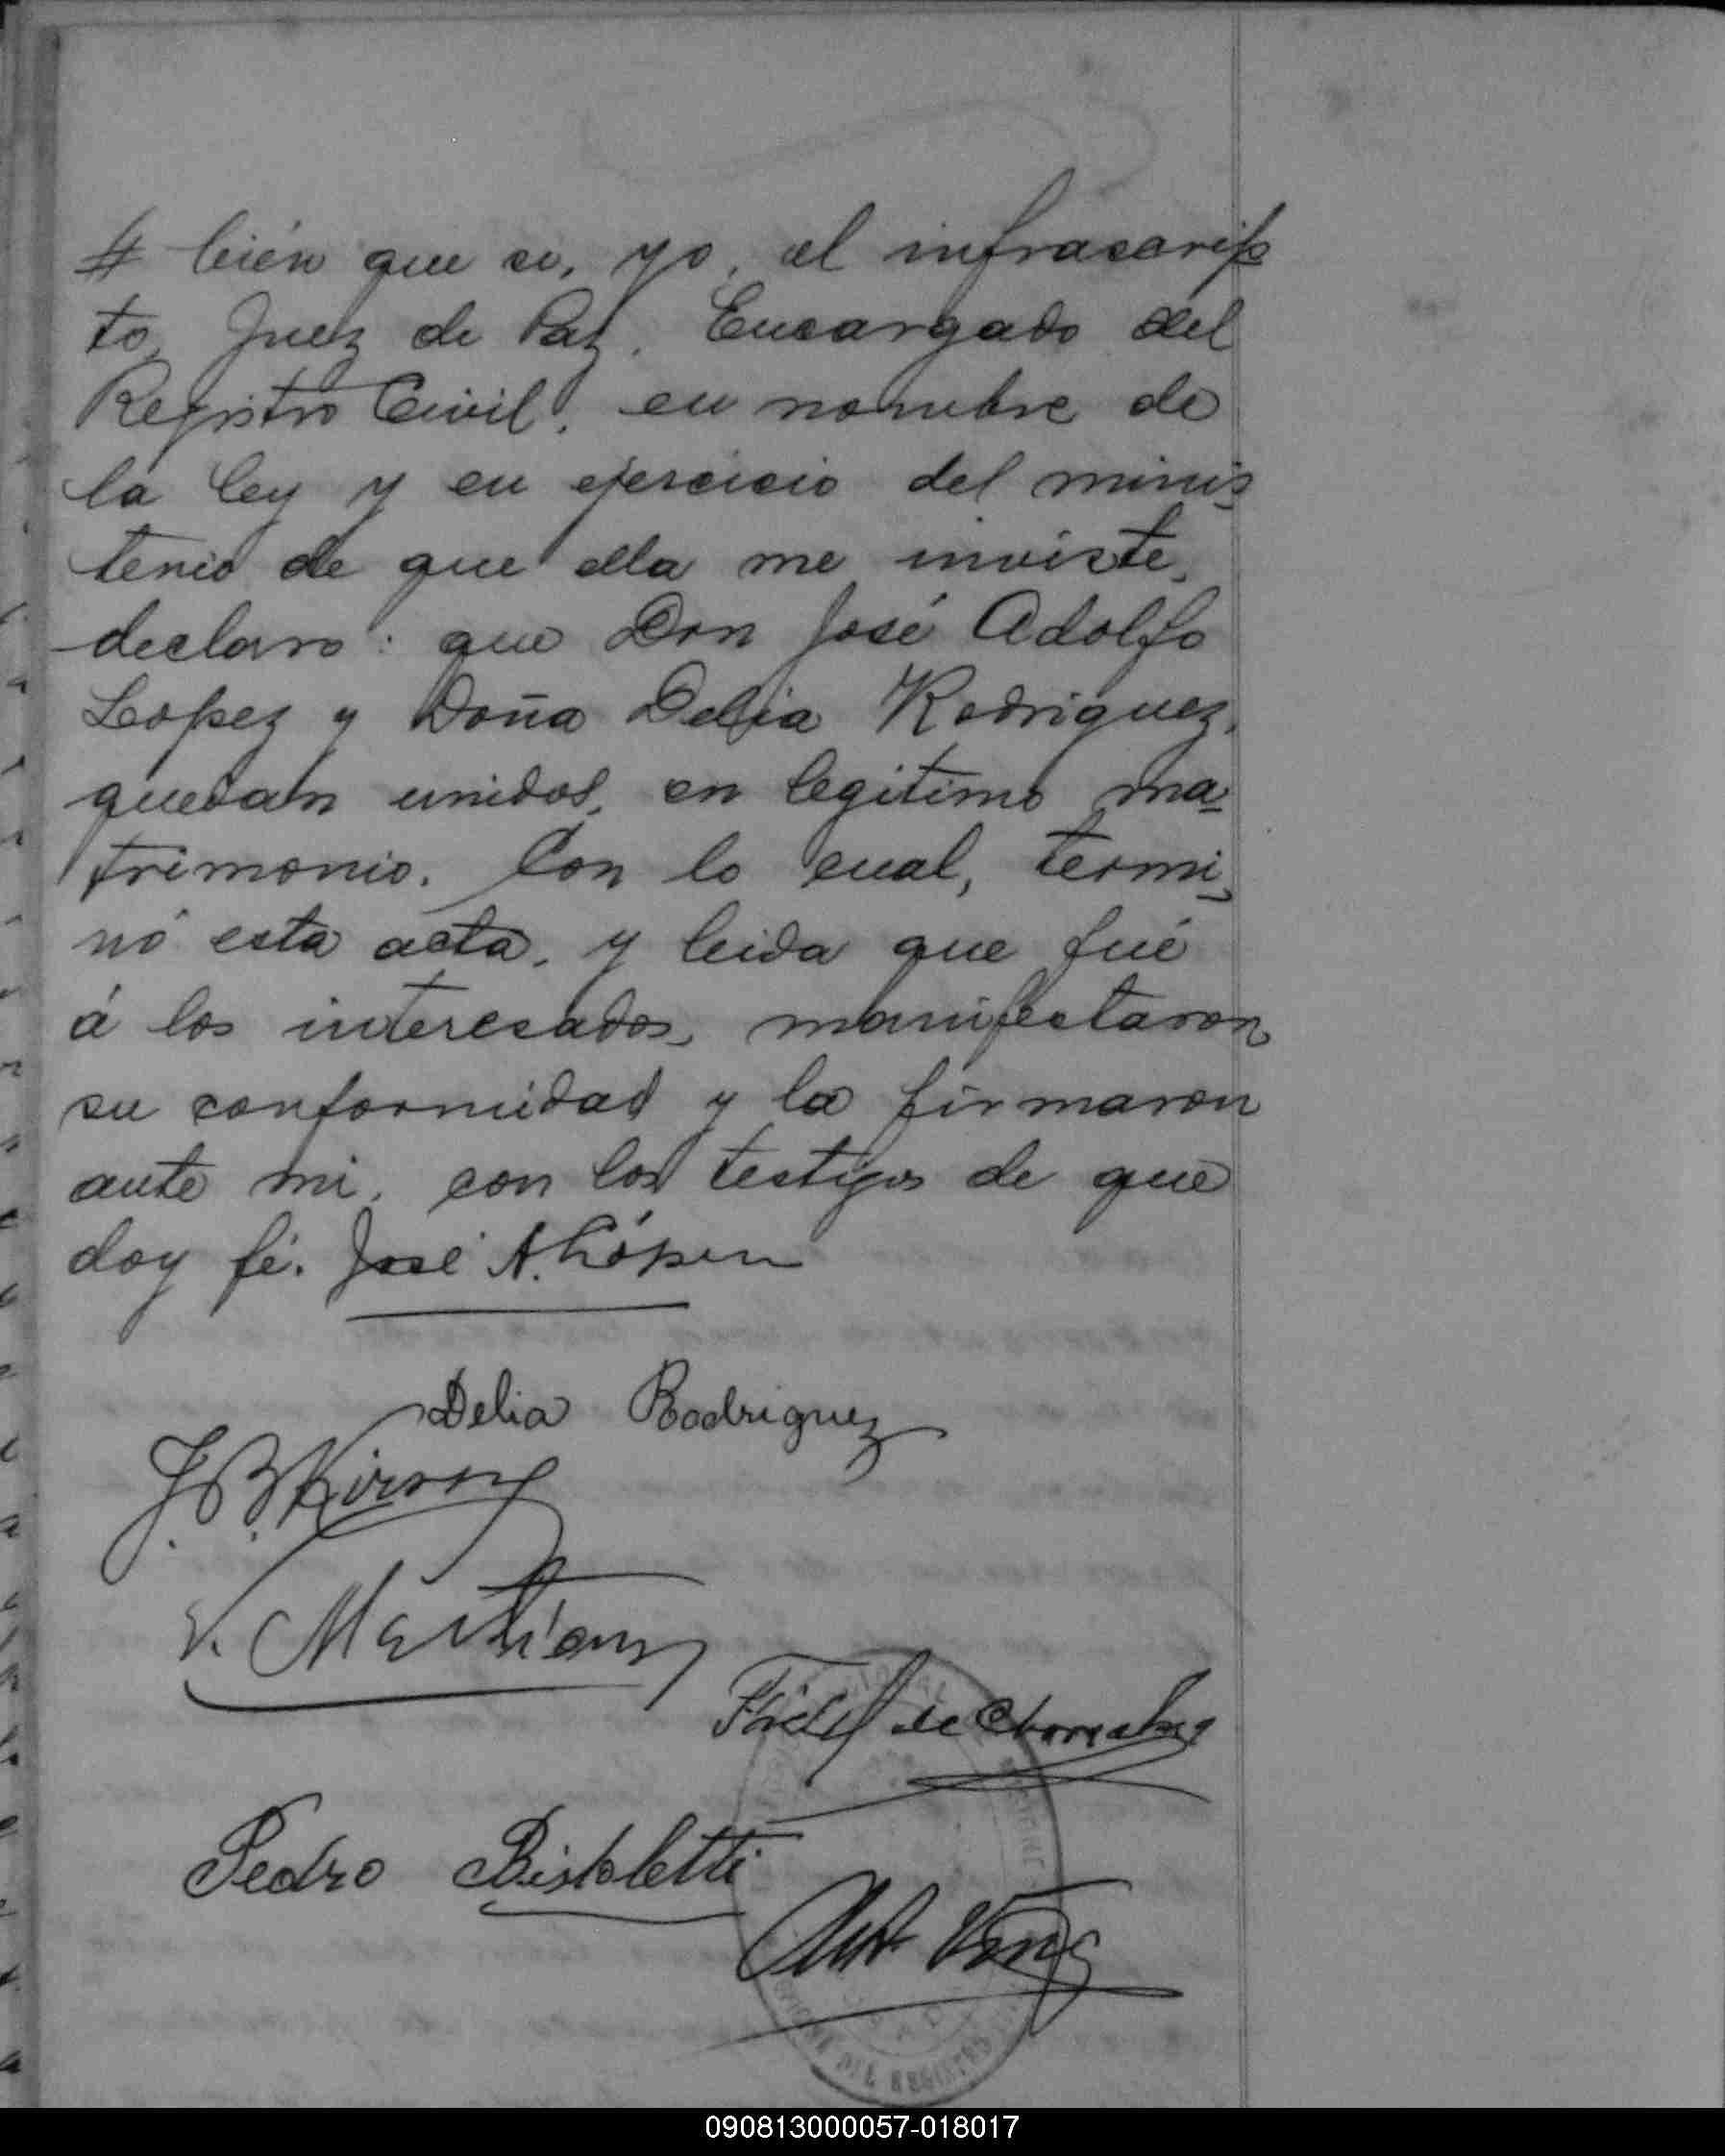 # bién que si, yo, el infrascrip
to, Juez de Paz, Encargado del
Registro Civil, en nombre de
la ley y en ejercicio del minis
terio de que ella me inviste,
declaro: que Don José Adolfo
Lopez y Doña Delia Rodriguez,
quedan unidos, en legitimo ma-
trimonio. Con lo cual, termi-
nó esta acta, y leida que fué
á los interesados, manifestaron
su conformidad y la firmaron
ante mi, con los testigos de que
doy fé. José A. López
Delia Rodriguez
J. B.
V.
Fidel de
Pedro Bistoletti
DEL REGISTRO
090813000057-018017